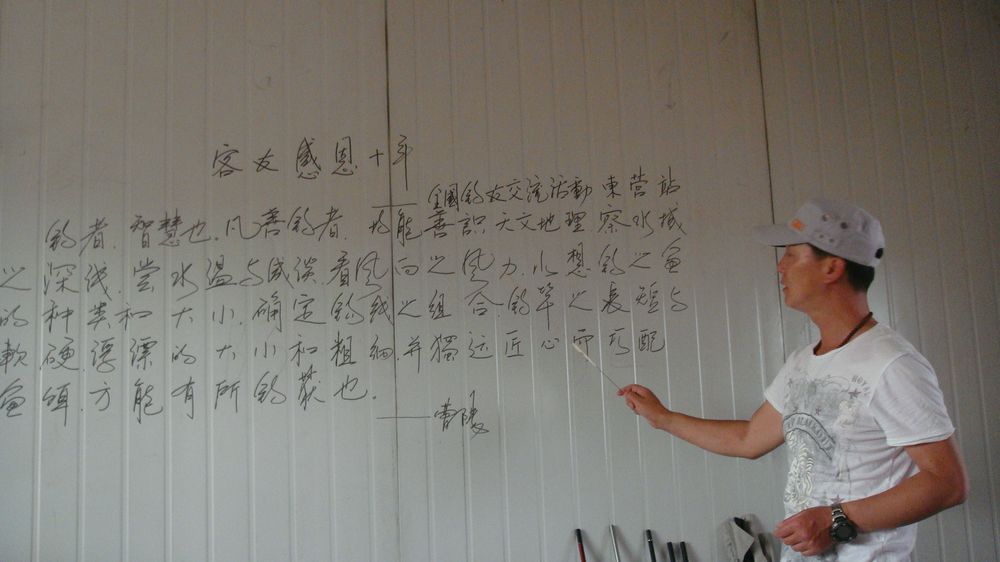 客友感恩十年
——全國钓友交流活動東营站
钓者.智慧也.凡善钓者.均能善識天文地理.察水域
之深浅.尝水温与咸淡.看风向之风力.水想钓之鱼
的种类和大小.确定钓线之组合.钓竿之長短与
軟硬.漂漂的大小和粗細.并獨运匠心而巧配
鱼饵.方能有所钓获也.
——曹